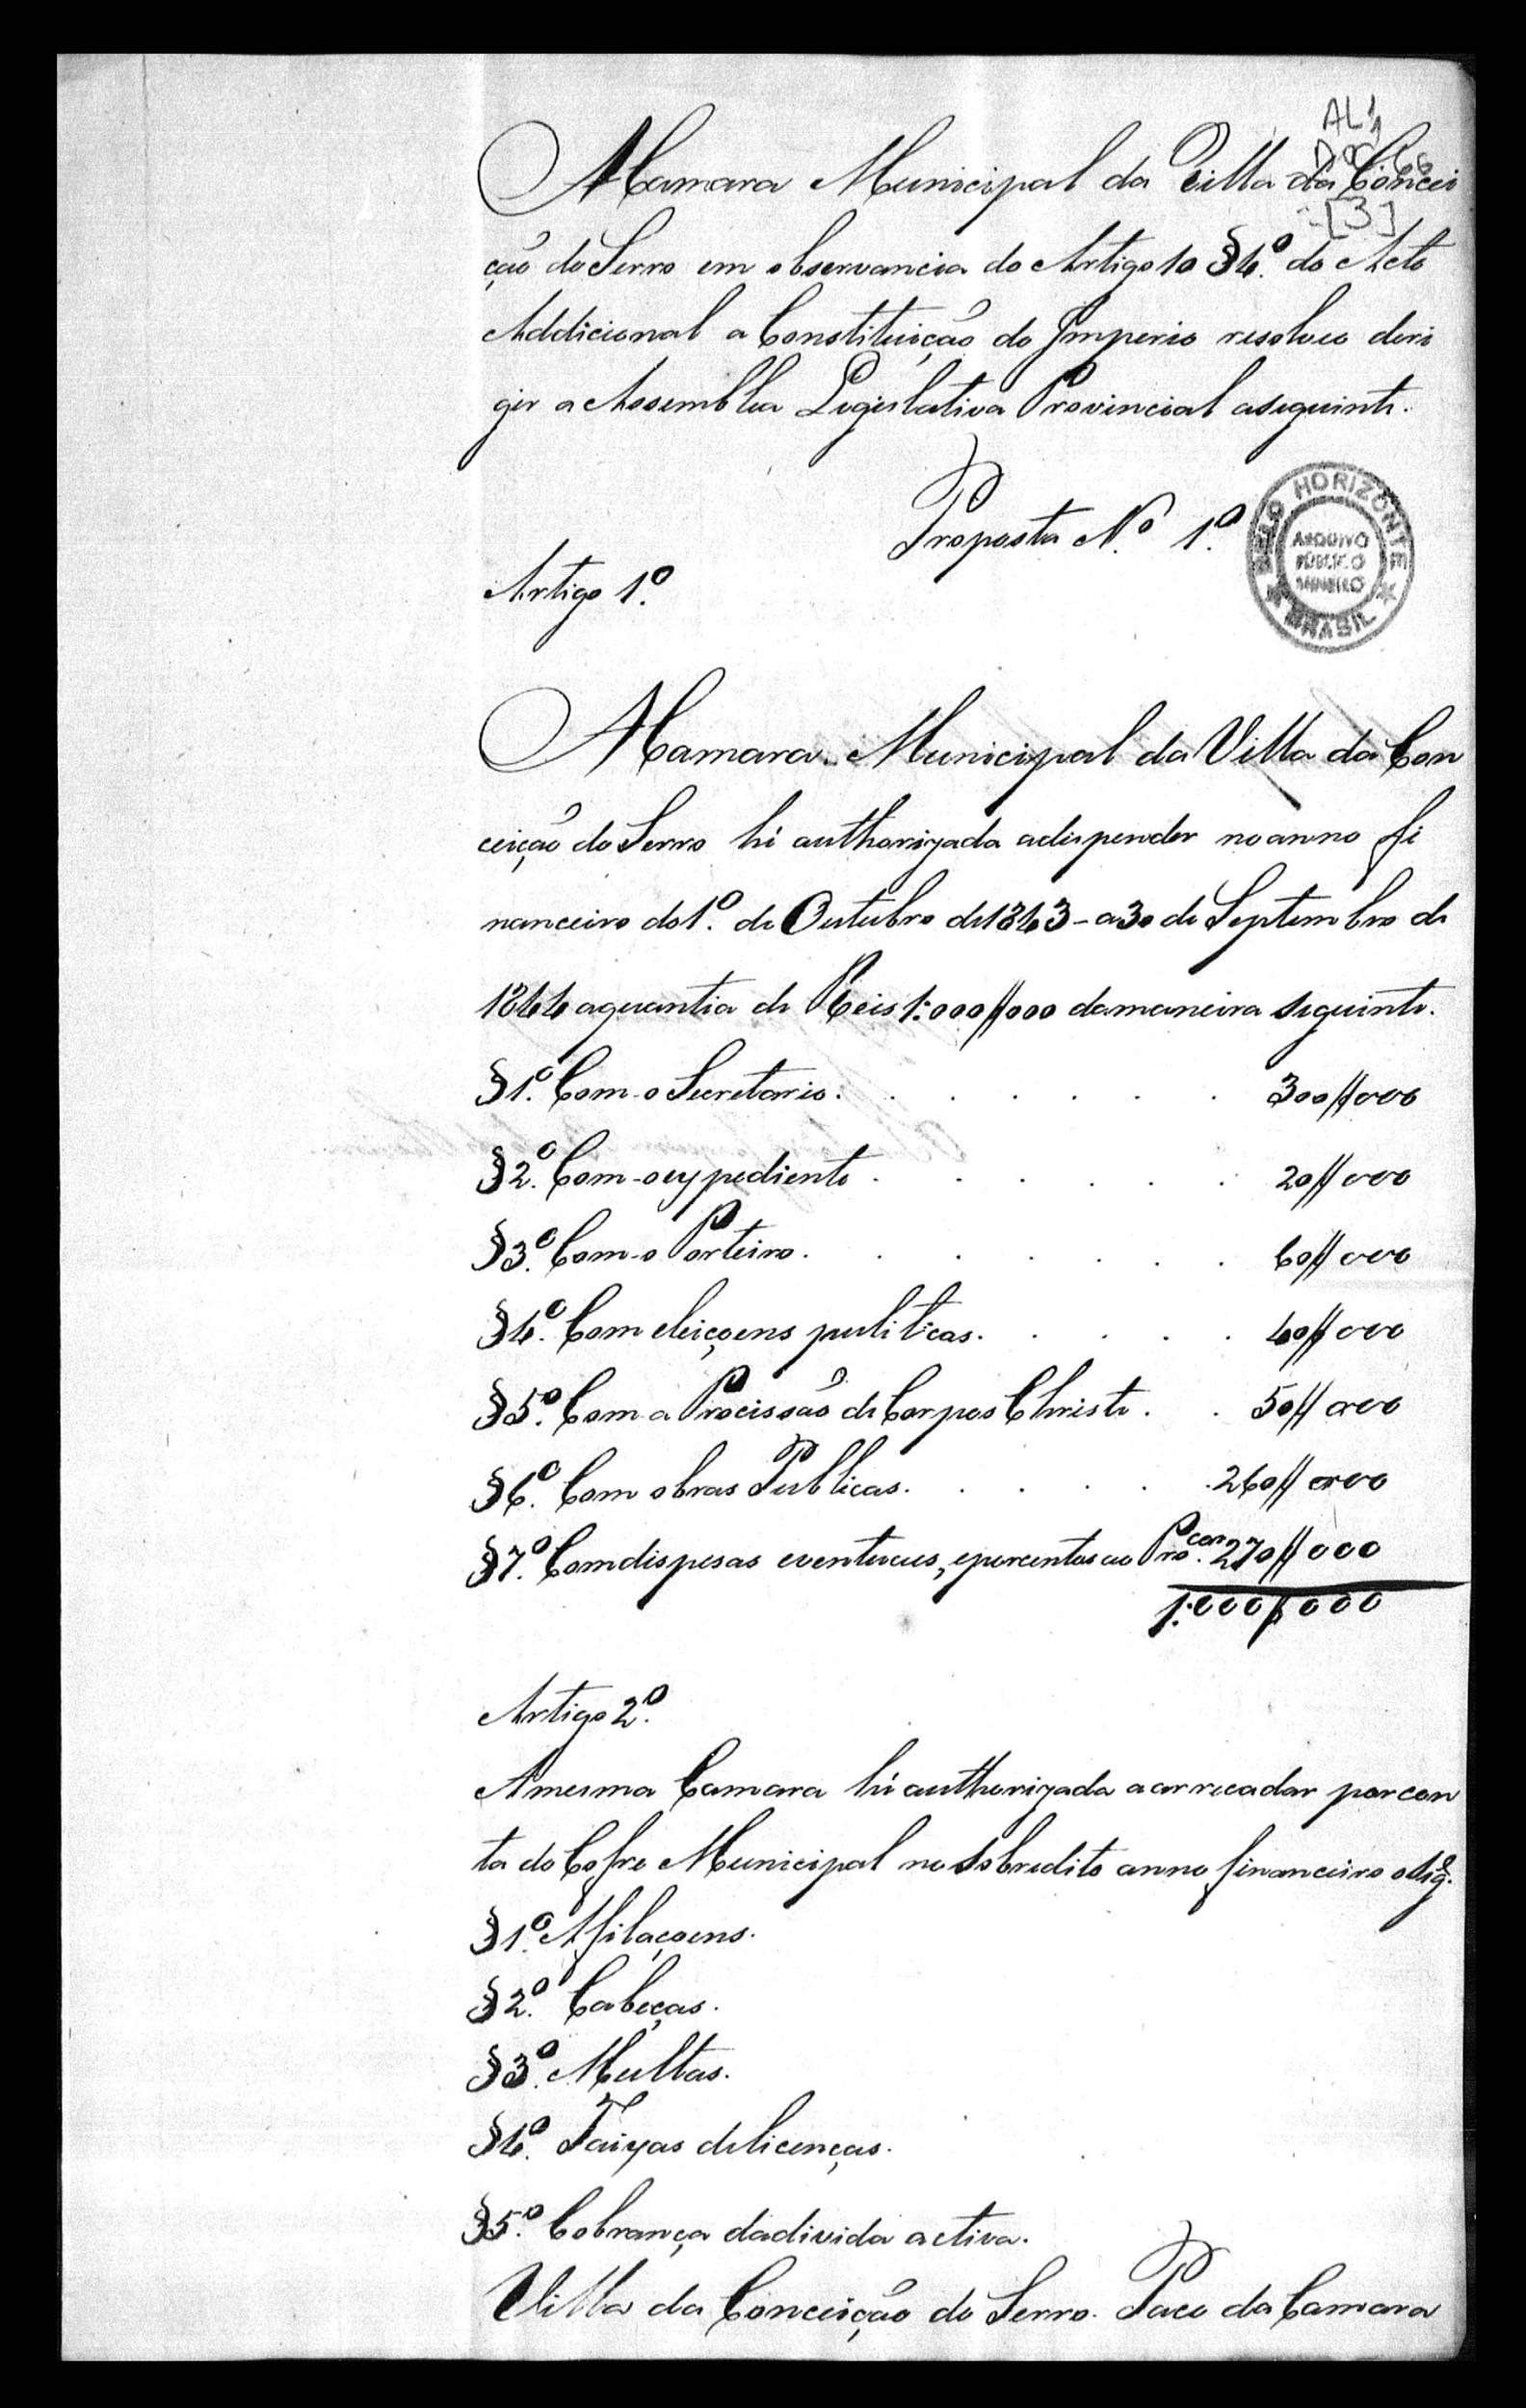 AL 1
Doc. 66
[3]
A Camara Municipal da Villa da Concei
ção do Serro em observancia do Artigo 10 §4º. do Acto
Addicional a Constituição do Imperio resolveo deri
gir a Assemblea Legislativa Provincial aseguinte.
Proposta Nº 1º.
BELO HORIZONTE
ARQUIVO
PÚBLICO
MINEIRO
BRASIL
Artigo 1º.
A Camara Municipal da Villa da Con
ceição do Serro hé authorizada adispender no anno fi
nanceiro do 1º. de Outubro de 1843 - a 30 de Septembro de
1844 aquantia de Reis 1:000$000 damaneira seguinte.
§1º. Com o Secretario. . . . . . 300$000
§2º. Com o expediente . . . . . . 20$000
§3º. Com o Porteiro. . . . . . . 60$000
§4º. Com eleiçoens puliticas. . . . . 40$000
§5º. Com a Procissão de Corpus Christe . . 50$000
§6º. Com obras Publicas. . . . . 260$000
§7º. Com dispesas eventuaes, eporcentos ao Procor. 270$000
1:000$000
Artigo 2º.
Amesma Camara hé authorizada aarrecadar porcon
ta do Cofre Municipal no sobredito anno financeiro o seg.e
§1º. Afilaçoens.
§2º. Cabeças.
§3º. Multas.
§4º. Taixas delicenças.
§5º. Cobrança dadivida activa.
Villa da Conceição do Serro. Paço da Camara